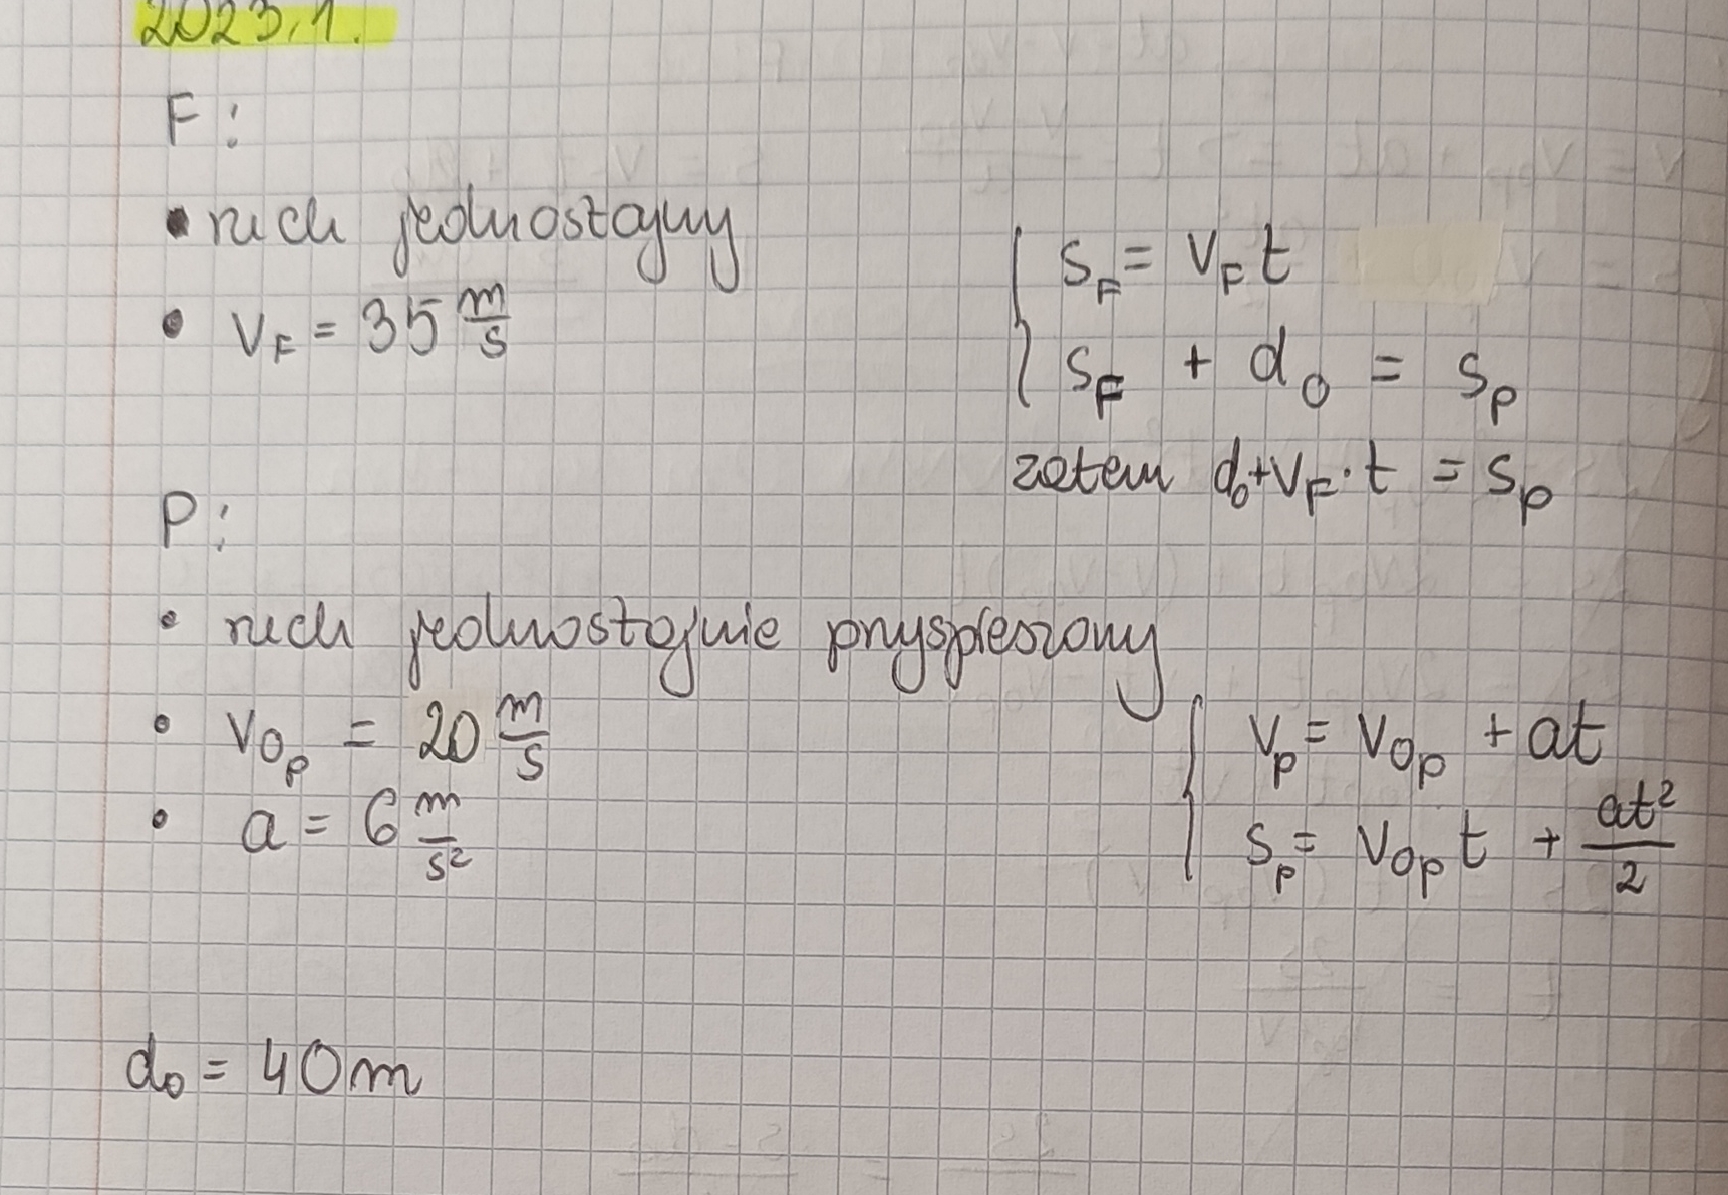 2023.1.
F:
• ruch jednostajny
• v_F = 35 m/s
{ s_F = v_F t
s_F + d_0 = s_p
zatem d_0 + v_F · t = s_p
P:
• ruch jednostajnie przyspieszony
• v_0p = 20 m/s
• a = 6 m/s²
{ v_p = v_0p + at
s_p = v_0p t + at²/2
d_0 = 40 m